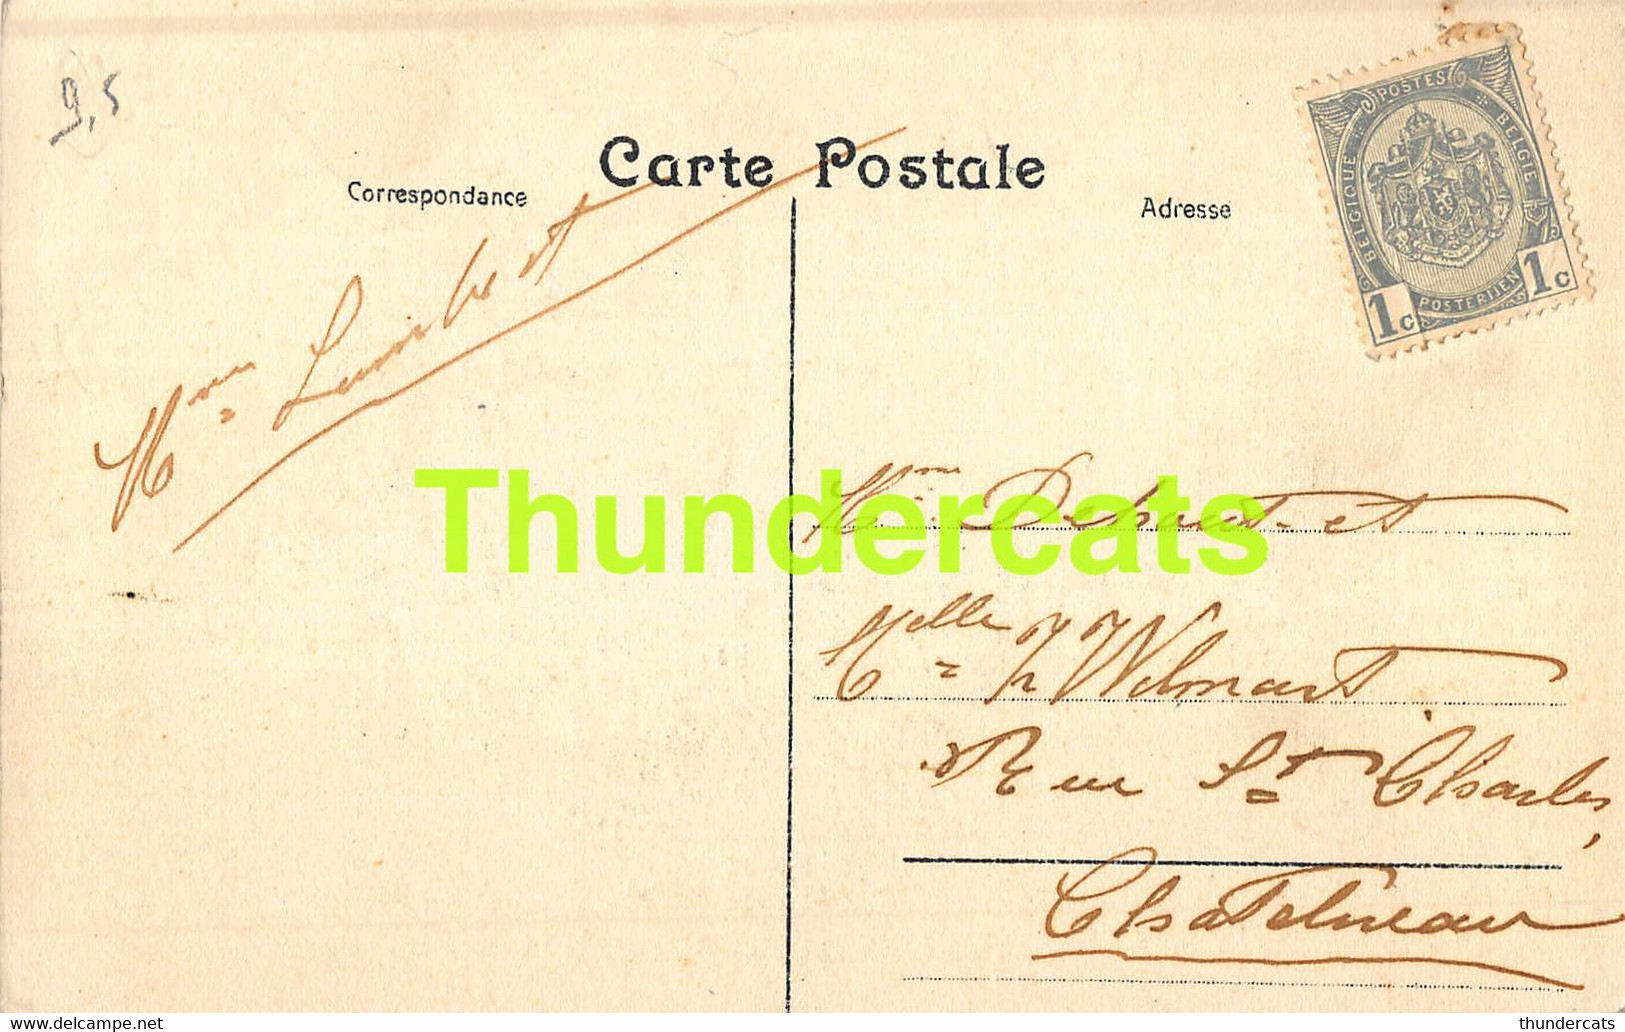 9,5
Carte Postale
Correspondance
Adresse
POSTES
BELGIQUE
BELGIE
POSTERIJEN
1c 1c
Mme Lambert
Thundercats
Mme Dehout et
Melle Wilmart
Rue St Charles,
Chatelineau
DELCAMPE.NET
thundercats